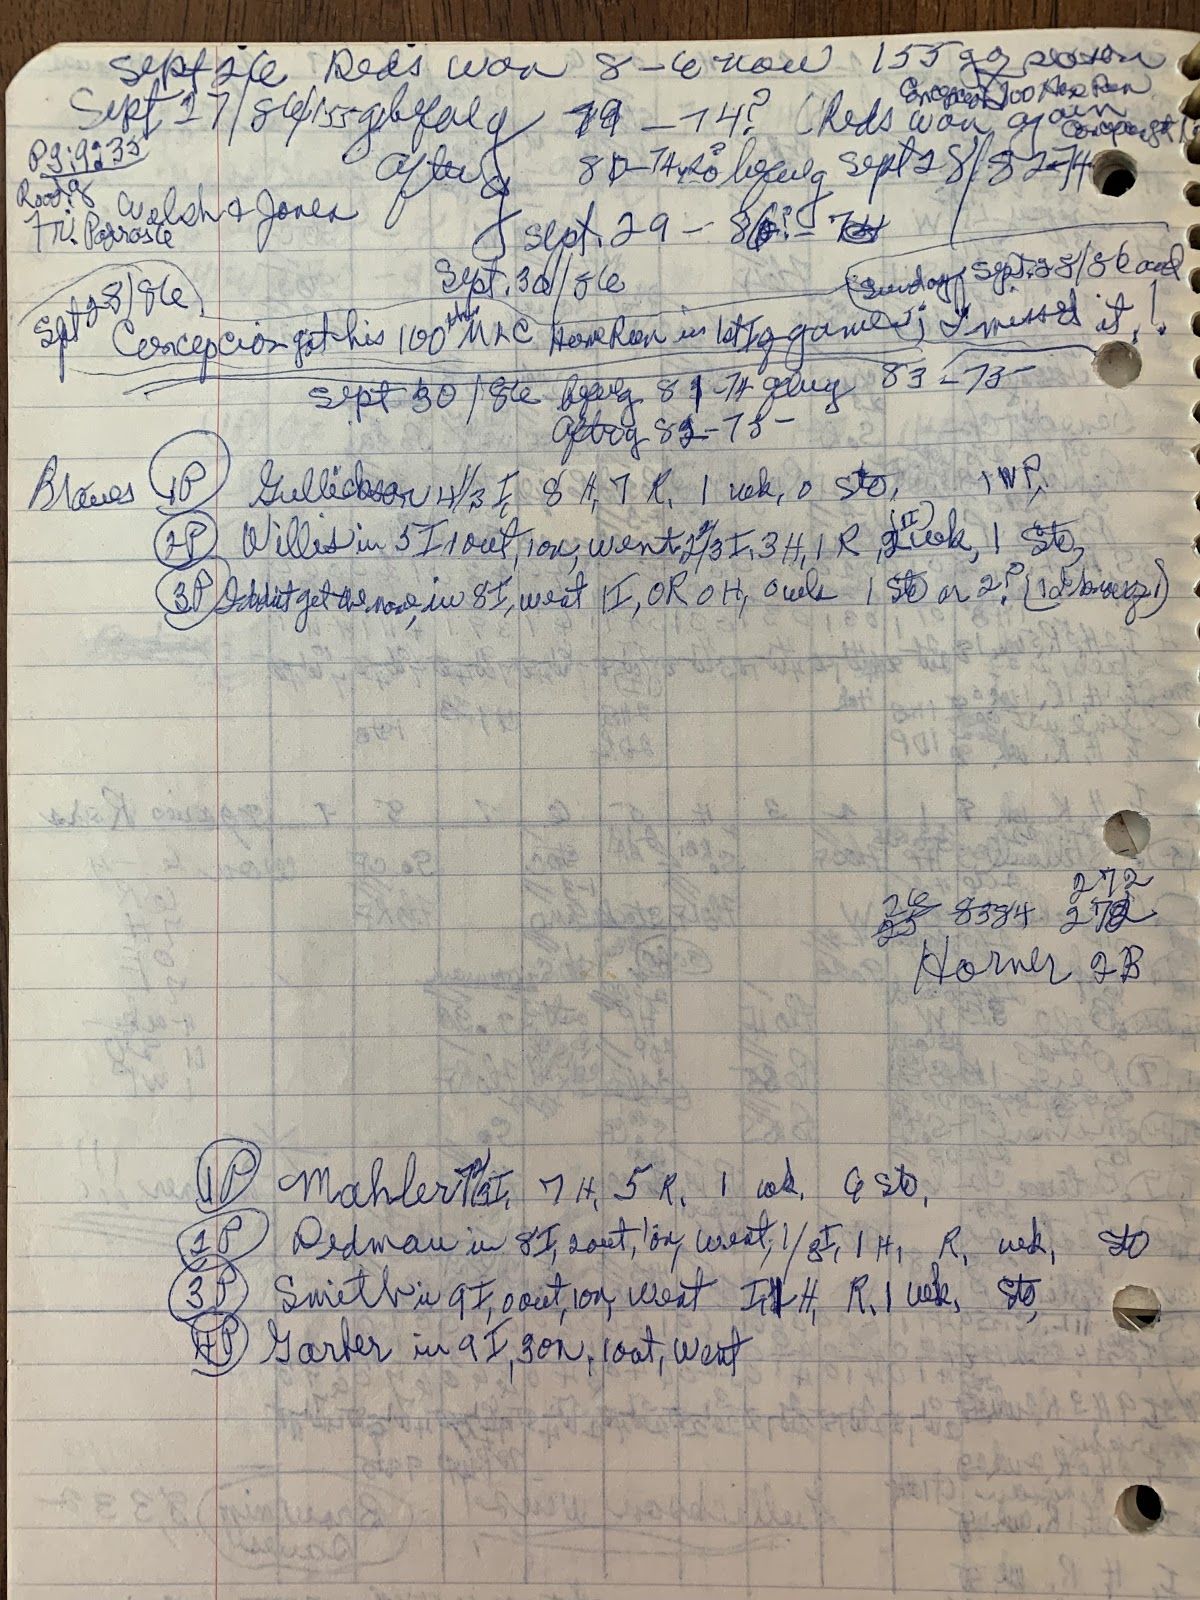 Sept 26 Reds won 8-6 now 155 g
Concepcion 100 Home Run
Sept 27/86 155 g 79-74? (Reds won again
Pg: 9235
after g 81-74 Sept 28/ 82-74
Rood: 98
Welsh & Jones
Fri. Parrosie
Sept. 29 - 8
Sept. 30/86
(Sunday, Sept. 28/86 and
Sept 28/86
Concepcion got his 100th MLC Home Run in 1st I g game; I missed it!
Sept 30/86 81-74 83-73
after g 82-75
Braves 1P Gullickson 4 1/3 I, 8 H, 7 R, 1 wk, 0 Sto, 1 WP,
2P Willis in 5 I 1 out, 1 on, went 2 2/3 I, 3 H, 1 R, 2 wk, 1 Sto,
3P didn't get the name, in 8 I, went 1 I, 0 R 0 H, 0 wk 1 Sto or 2?
272
26 8384 272
25
Horner 2B
1P Mahler 7 2/3 I, 7 H, 5 R, 1 wk, 6 Sto,
2P Dedmon in 8 I, 2 out, 1 on, went, 1/3 I, 1 H, R, wk, Sto
3P Smith in 9 I, 0 out, 1 on, went I, 1 H, R, 1 wk, Sto,
4P Garber in 9 I, 3 on, 1 out, went